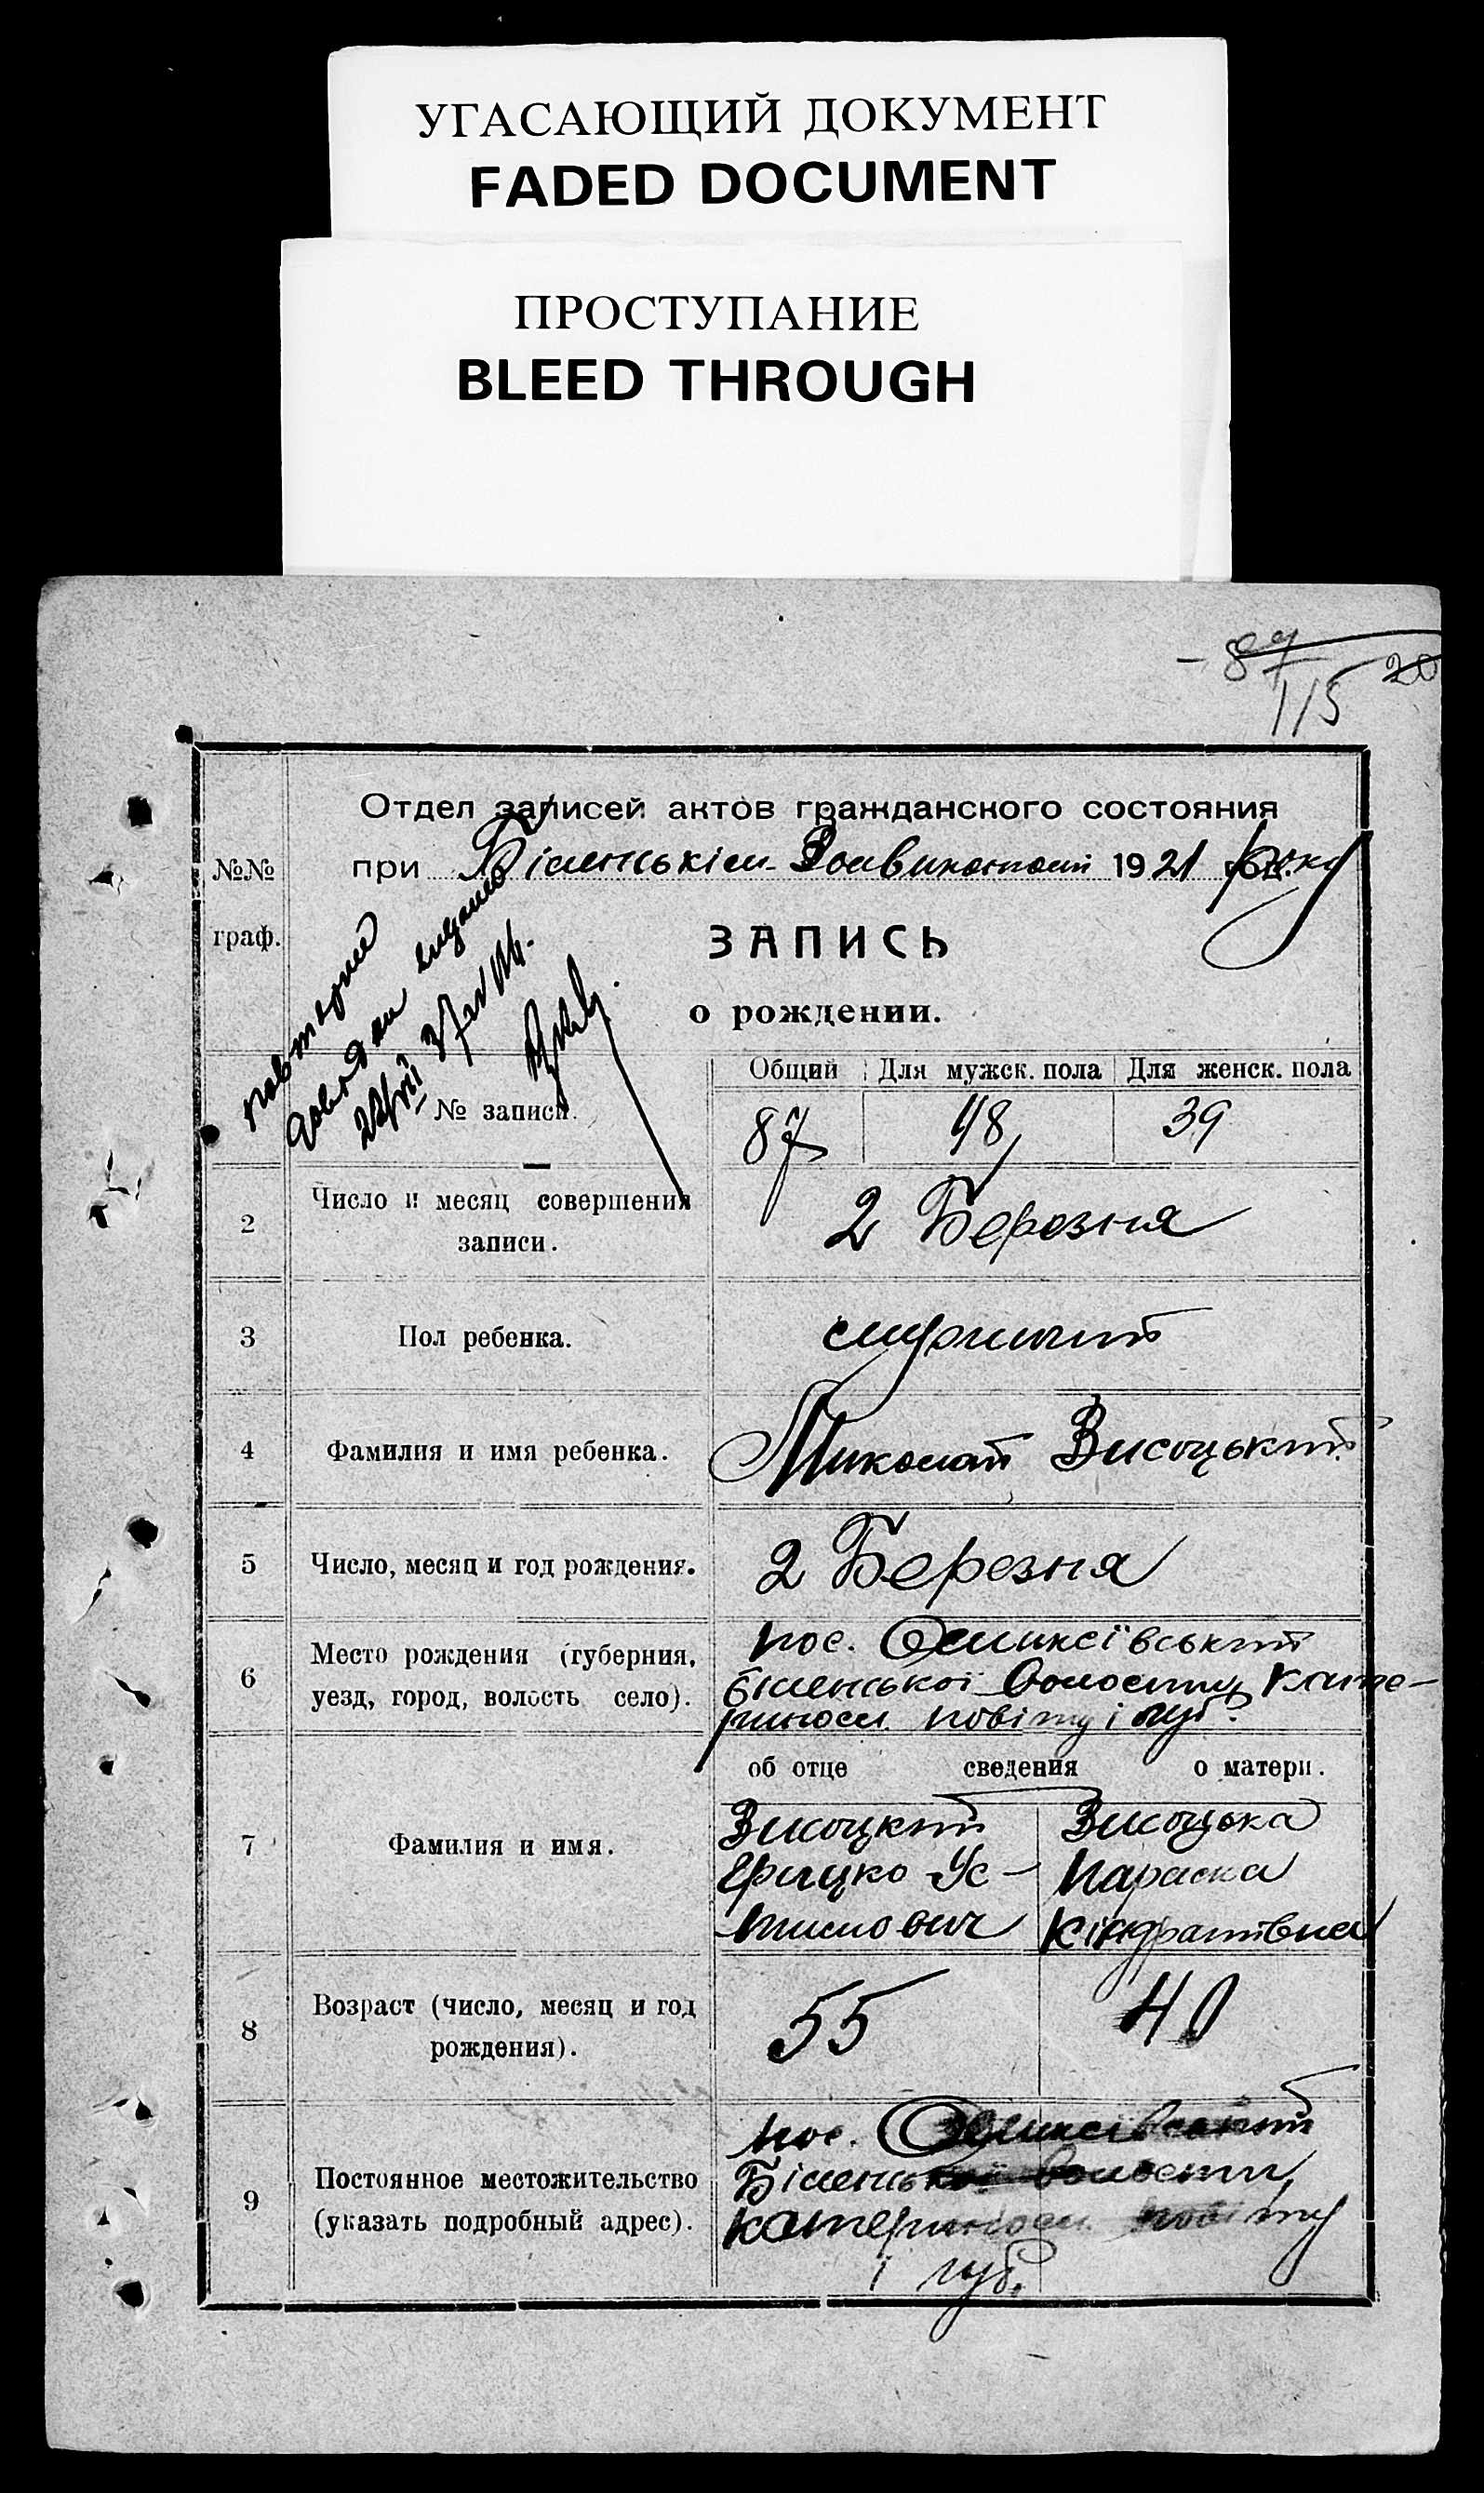 УГАСАЮЩИЙ ДОКУМЕНТ
FADED DOCUMENT
ПРОСТУПАНИЕ
BLEED THROUGH
115
20
№№
граф.
Отдел записей актов гражданского состояния
при Біленькім Волвиконкомі 1921 року
ЗАПИСЬ
о рождении.
повторне
видано
№ записи.
Общий Для мужск. пола Для женск. пола
87 48 39
2 Число и месяц совершения
записи.
2 Березня
3 Пол ребенка.
4 Фамилия и имя ребенка.
Миколай Висоцький
5 Число, месяц и год рождения.
2 Березня
6 Место рождения (губерния,
уезд, город, волость село).
пос. Олексіївський
Біленької волости, Кате-
риносл. повіту і губ.
об отце сведения о матери.
7 Фамилия и имя.
Висоцкий
Грицко Ус-
тимович
Висоцька
Параска
Кіндратівна
8 Возраст (число, месяц и год
рождения).
55 40
9 Постоянное местожительство
(указать подробный адрес).
пос. Олексіївський
Біленької волости,
Катериносл. повіту
і губ.